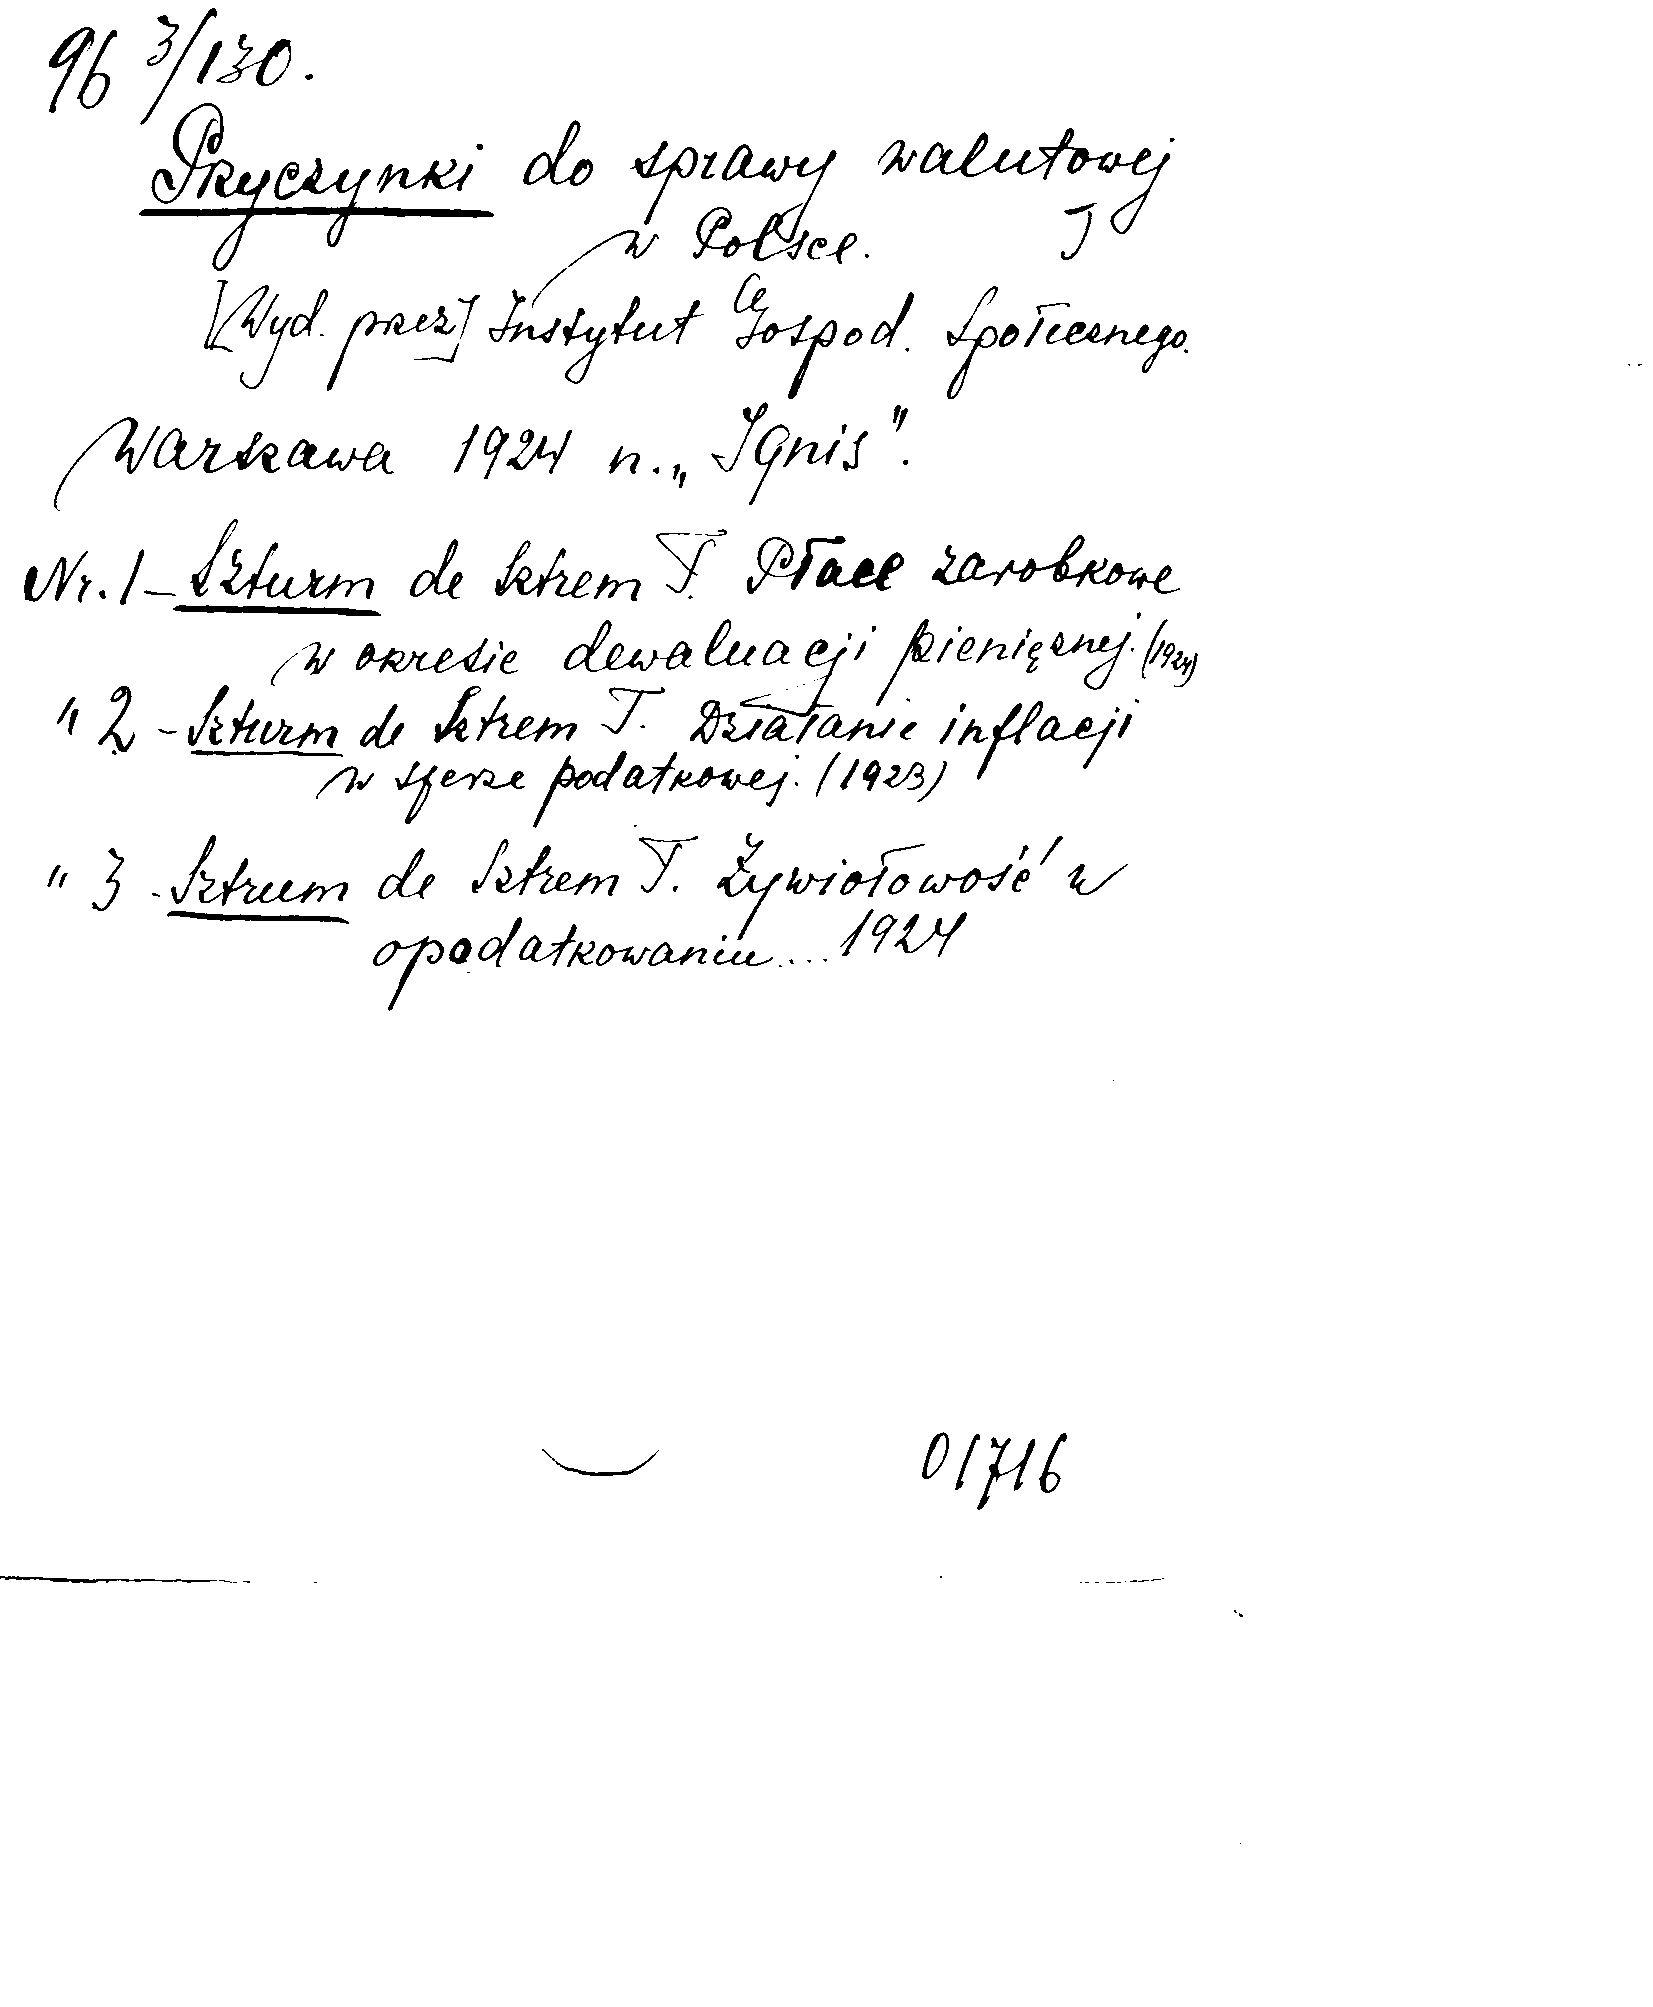 96 3/130.
Przyczynki do sprawy walutowej
w Polsce.
[Wyd. przez] Instytut Gospod. Społecznego.
Warszawa 1924 n. „Ignis".
Nr. 1 - Szturm de Sztrem T. Płace zarobkowe
w okresie dewaluacji pieniężnej. (1924)
" 2 - Szturm de Sztrem T. Działanie inflacji
w sferze podatkowej. (1923)
" 3 - Sztrum de Sztrem T. Żywiołowość w
opodatkowaniu... 1924
01716